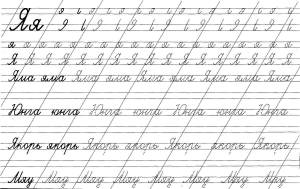 Яя
я я я я я я я я я я я я я я
Я Я Я Я Я Я Я Я Я Я Я Я Я Я
Яма яма Яма яма Яма яма Яма яма
Юнга юнга Юнга Юнга юнга Юнга
Якорь якорь Якорь якорь Якорь якорь Якорь
Мяу Мяу Мяу Мяу Мяу Мяу Мяу Мяу